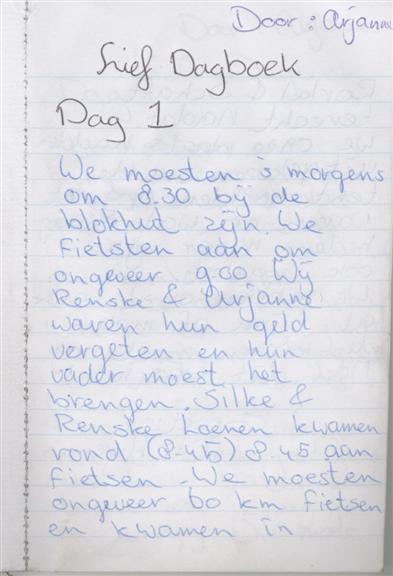 Door: Arjanne
Lief Dagboek
Dag 1
We moesten 's morgens
om 8.30 bij de
blokhut zijn. We
fietsten aan om
ongeveer 9.00 Wij
Renske & Arjanne
waren hun geld
vergeten en hun
vader moest het
brengen. Silke &
Renske Loenen kwamen
rond (8.45) 8.45 aan
fietsen. We moesten
ongeveer 60 km fietsen
en kwamen in